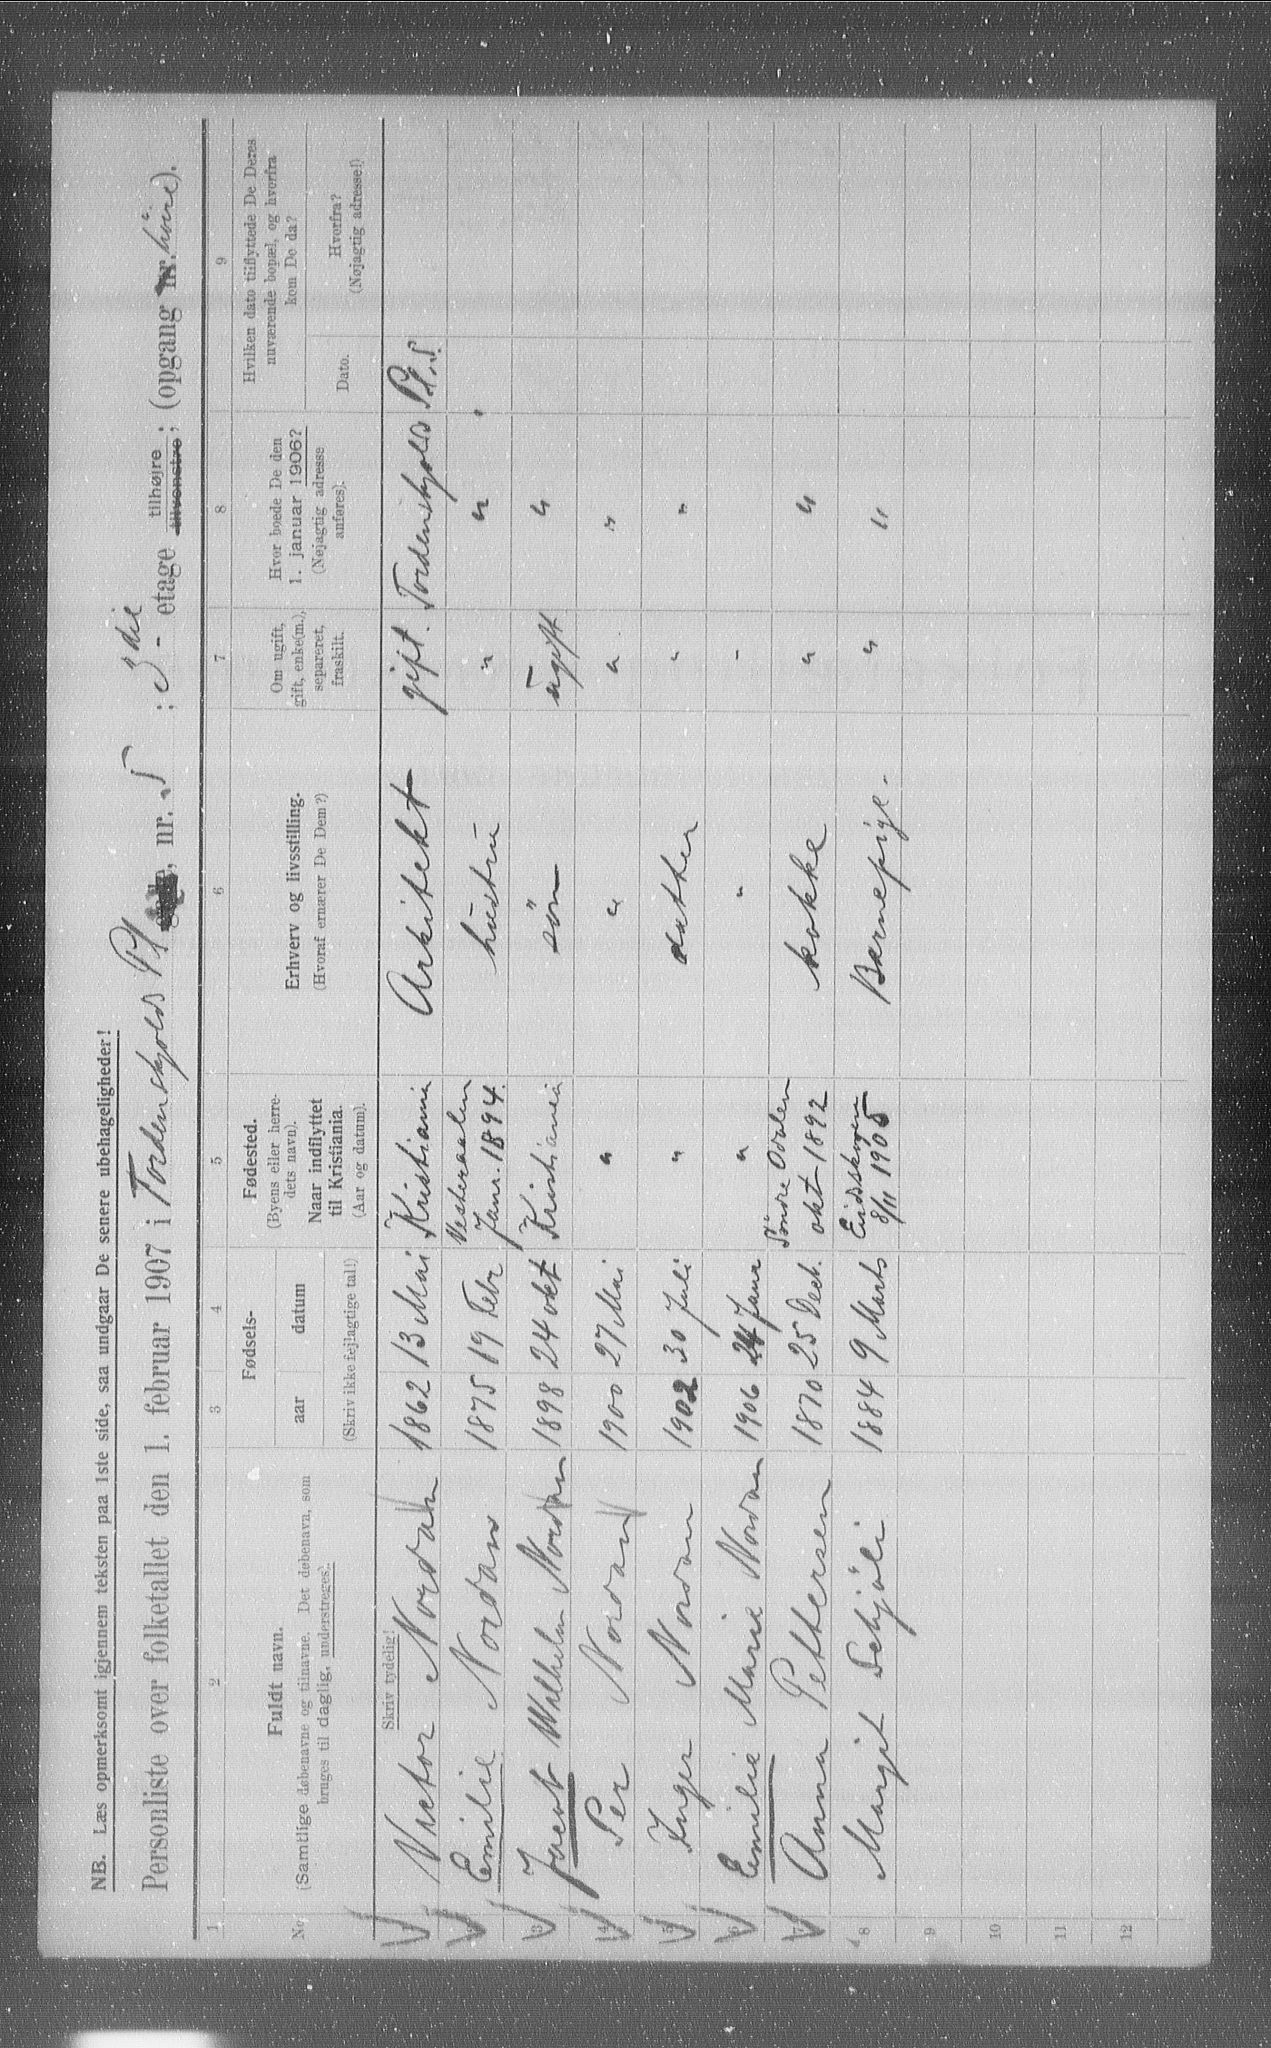 NB. Læs opmerksomt igjennem teksten paa 1ste side, saa undgaar De senere ubehageligheder!
Personliste over folketallet den 1. februar 1907 i Tordenskjolds Pl, nr. 5; 3die - etage tilhøjre tilvenstre; (opgang nr. höire).
1 2 3 4 5 6 7 8 9
Nr.
Fuldt navn.
(Samtlige døbenavne og tilnavne. Det døbenavn, som
bruges til daglig, understreges)
Fødsels-
aar datum
(Skriv ikke fejlagtige tal!)
Fødested.
(Byens eller herre-
dets navn).
Naar indflyttet
til Kristiania.
(Aar og datum).
Erhverv og livsstilling.
(Hvoraf ernærer De Dem?)
Om ugift,
gift, enke(m.),
separeret,
fraskilt.
Hvor boede De den
1. januar 1906?
(Nøjagtig adresse
anføres).
Hvilken dato tilflyttede De Deres
nuværende bopæl, og hvorfra
kom De da?
Dato.
Hvorfra?
(Nøjagtig adresse!)
Skriv tydelig!
1 Victor Nordan 1862 13 Mai Kristiania Arkitekt gift. Tordenskjolds Pl. 5.
2 Emilie Nordan 1875 19 Febr Vesteraalen Janr. 1894. hustru " " "
3 Jacob Wilhelm Nordan 1898 24 okt Kristiania sön ugift "
4 Per Nordan 1900 27 Mai " " " "
5 Inger Nordan 1902 30 Juli " datter " "
6 Emilie Marie Nordan 1906 24 Janr " " -
7 Anna Pettersen 1870 25 Dech. Söndre Odalen okt 1892 kokke " "
8 Margit Schjöli 1884 9 Marts Eidskogen 8/11 1905 Barnepige. " "
9
10
11
12